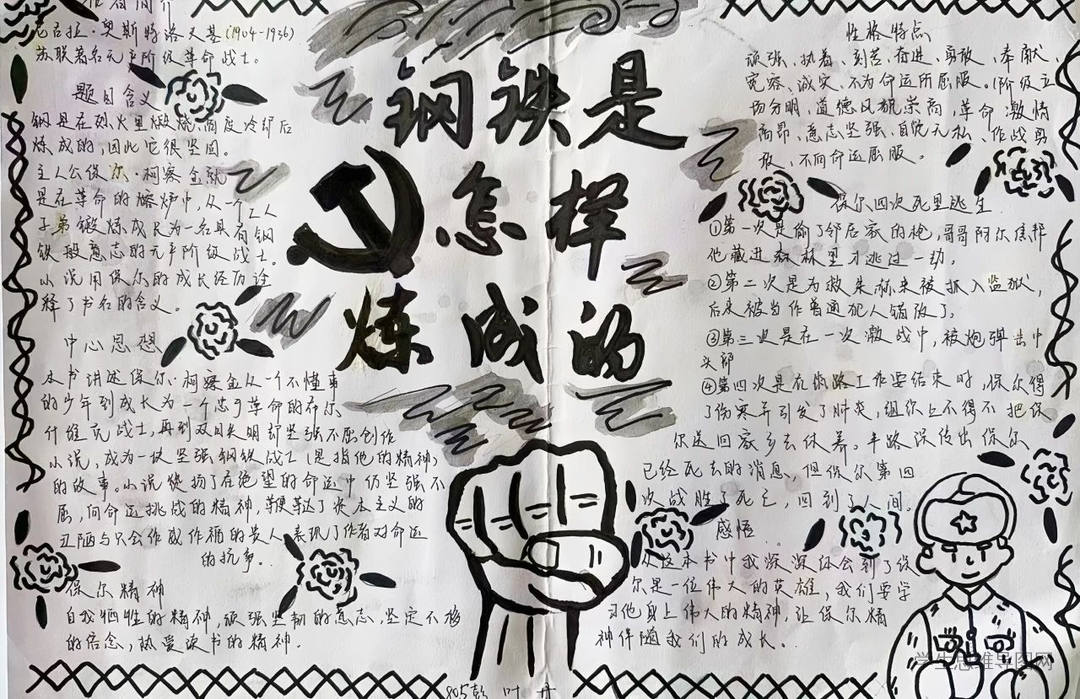 作者简介
尼古拉·奥斯特洛夫基(1904-1936)
苏联著名无产阶级革命战士。
题目含义
钢是在烈火里燃烧、高度冷却后
炼成的,因此它很坚固。
主人公保尔·柯察金就
是在革命的熔炉中,从一个工人
子弟锻炼成长为一名具有钢
铁般意志的无产阶级战士。
小说用保尔的成长经历诠
释了书名的含义。
中心思想
本书讲述保尔·柯察金从一个不懂事
的少年到成长为一个忠于革命的布尔
什维克战士,再到双目失明却坚强不屈创作
小说,成为一块坚强钢铁战士(是指他的精神)
的故事。小说赞扬了在绝望的命运中仍坚强不
屈,向命运挑战的精神,鞭挞了资本主义的
丑陋与只会作威作福的贵人,表现了作者对命运
的抗争。
保尔精神
自我牺牲的精神,顽强坚韧的意志,坚定不移
的信念,热爱读书的精神。
钢铁是
怎样
炼成的
性格特点
顽强、执着、刻苦、奋进、勇敢、奉献、
宽容、诚实、不为命运所屈服。(阶级立
场分明,道德风貌崇高,革命激情
高昂、意志坚强、自馁无私、作战勇
敢、不向命运屈服。
保尔四次死里逃生
①第一次是偷了邻居家的枪,哥哥阿尔焦帮
他藏进森林里才逃过一劫,
②第二次是为救朱赫来被抓入监狱,
后来被当作普通犯人错放了,
③第三次是在一次激战中,被炮弹击中
头部
④第四次是在筑路工作要结束时,保尔得
了伤寒并引发了肺炎,组织上不得不把保
尔送回家乡去休养。半路误传出保尔
已经死去的消息,但保尔第四
次战胜了死亡,回到了人间。
感悟
从这本书中我深深体会到了保
尔是一位伟大的英雄,我们要学
习他身上伟大的精神,让保尔精
神伴随我们的成长。
805彭 叶
学生思维导图网